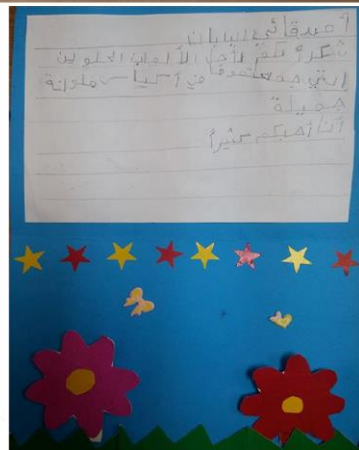 أصدقائي اليابان
شكراً لكم لأجل الألعاب الحلوين
إلتي في أكياس ملونة
جميلة
أنا أحبكم كثيراً